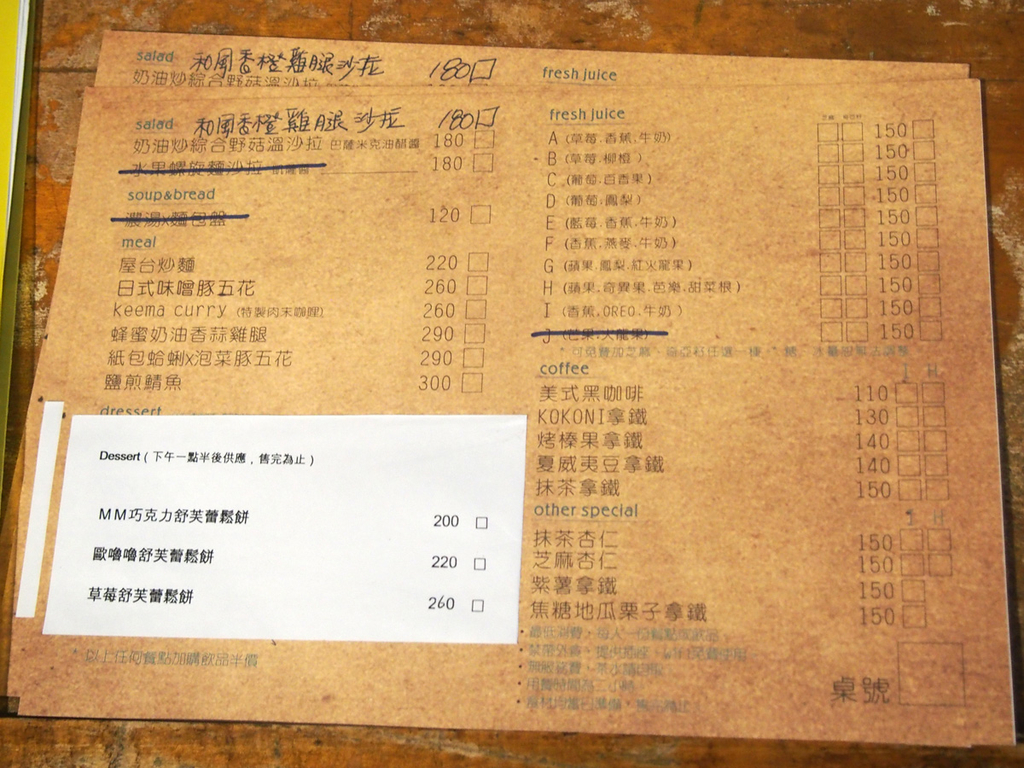 salad 和風香橙雞腿沙拉 180
奶油炒綜合野菇溫沙拉
fresh juice
salad 和風香橙雞腿沙拉 180
奶油炒綜合野菇溫沙拉 巴薩米克油醋醬 180
水果螺旋麵沙拉 180
soup&bread
濃湯x麵包盤 120
meal
屋台炒麵 220
日式味噌豚五花 260
keema curry (特製肉末咖哩) 260
蜂蜜奶油香蒜雞腿 290
紙包蛤蜊x泡菜豚五花 290
鹽煎鯖魚 300
dressert
Dessert ( 下午一點半後供應，售完為止 )
MM巧克力舒芙蕾鬆餅 200
歐嚕嚕舒芙蕾鬆餅 220
草莓舒芙蕾鬆餅 260
* 以上任何餐點加購飲品半價
fresh juice
A (草莓.香蕉.牛奶) 150
B (草莓.柳橙) 150
C (葡萄.百香果) 150
D (葡萄.鳳梨) 150
E (藍莓.香蕉.牛奶) 150
F (香蕉.燕麥.牛奶) 150
G (蘋果.鳳梨.紅火龍果) 150
H (蘋果.奇異果.芭樂.甜菜根) 150
I (香蕉.OREO.牛奶) 150
J (芒果.火龍果) 150
coffee I H
美式黑咖啡 110
KOKONI拿鐵 130
烤榛果拿鐵 140
夏威夷豆拿鐵 140
抹茶拿鐵 150
other special I H
抹茶杏仁 150
芝麻杏仁 150
紫薯拿鐵 150
焦糖地瓜栗子拿鐵 150
桌號